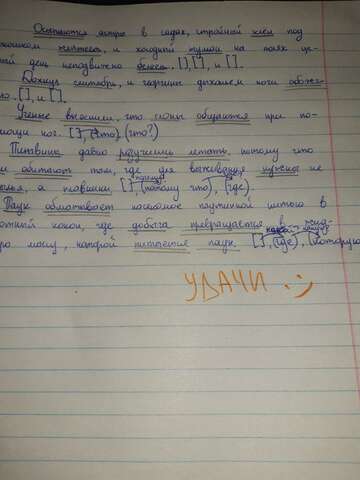 Осыпаются астры в садах, стройный клён под
окошком желтеет, и холодный туман на полях це-
лый день неподвижно белеет. [ ], [ ], и [ ].
Дохнул сентябрь, и георгины дыханьем ночи обож-
[ ], и [ ].
Учёные выяснили, что слоны общаются при по-
мощи ног. [ ], (что) (что?)
Пингвины давно разучились летать, потому что
обитают там, где для выживания нужны не
а плавники [ ], (потому что), (где).
Паук обматывает насекомое паутинной нитью в
плотный кокон, где добыча превращается в жид-
массу, которой питается паук. [ ], (где), (которую
УДАЧИ :)